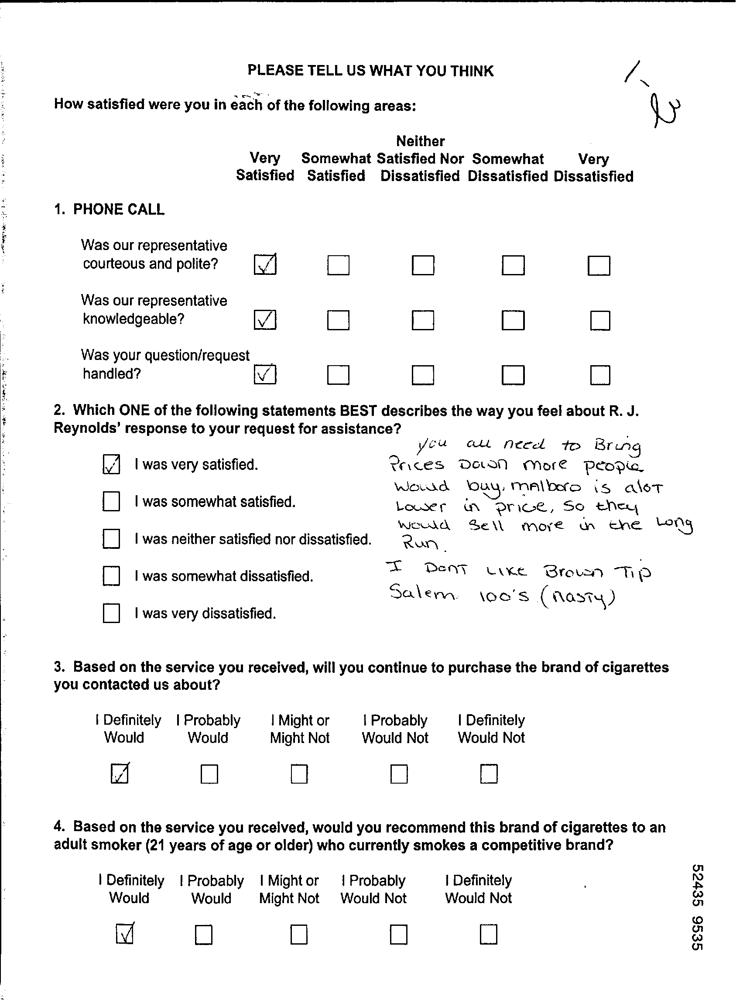 PLEASE TELL US WHAT YOU THINK
How satisfied were you in each of the following areas:
Neither
Very Somewhat Satisfied Nor Somewhat Very
Satisfied Satisfied Dissatisfied Dissatisfied Dissatisfied
1. PHONE CALL
Was our representative
courteous and polite?
Was our representative
knowledgeable?
Was your question/request
handled?
2. Which ONE of the following statements BEST describes the way you feel about R. J.
Reynolds' response to your request for assistance?
I was very satisfied.
I was somewhat satisfied.
I was neither satisfied nor dissatisfied.
I was somewhat dissatisfied.
I was very dissatisfied.
you all need to Bring
Prices Down more people
would buy, malboro is alot
Lower in price, so they
would sell more in the Long
Run.
I Dont Like Brown Tip
Salem 100's (nasty)
3. Based on the service you received, will you continue to purchase the brand of cigarettes
you contacted us about?
I Definitely I Probably I Might or I Probably I Definitely
Would Would Might Not Would Not Would Not
4. Based on the service you received, would you recommend this brand of cigarettes to an
adult smoker (21 years of age or older) who currently smokes a competitive brand?
I Definitely I Probably I Might or I Probably I Definitely
Would Would Might Not Would Not Would Not
52435 9535